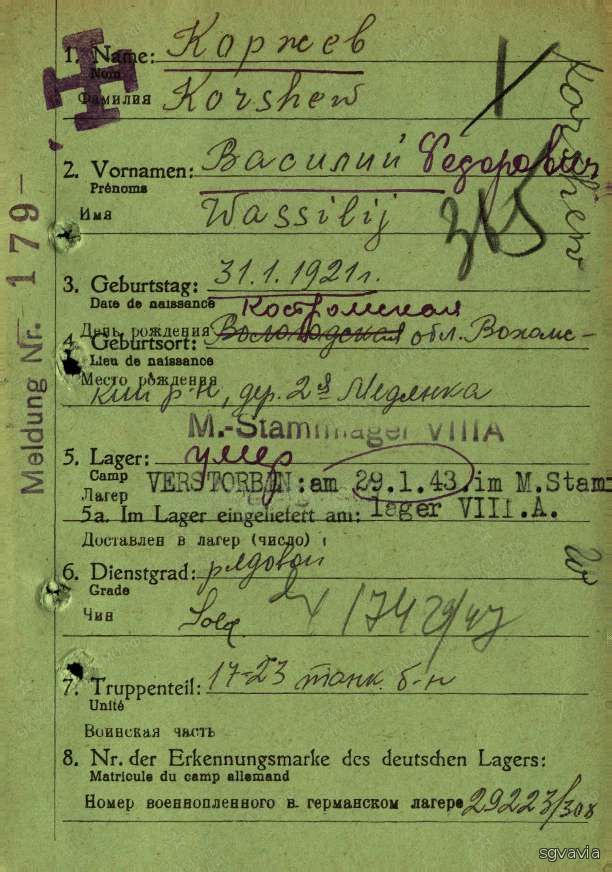 1. Name: Каржев
Nom
Фамилия Korshew
Korshew
2. Vornamen: Василий Федорович
Prénoms
Имя Wassilij
315
3. Geburtstag: 31.1.1921г.
Date de naissance Костромская
День рождения Вологодская обл. Вохомс-
4. Geburtsort:
Lieu de naissance
Место рождения
кий р-н, дер. 2я Медянка
M.-Stammlager VIIIA
5. Lager: умер
Camp VERSTORBEN: am 29.1.43. im M.Stam
Лагер
5a. Im Lager eingeliefert am: lager VIII.A.
Доставлен в лагер (число)
6. Dienstgrad: рядовой
Grade
Чин Sold.
7. Truppenteil: 17-23 танк. б-н
Unité
Воинская часть
8. Nr. der Erkennungsmarke des deutschen Lagers:
Matricule du camp allemand
Номер военнопленного в германском лагере 29223/308
Meldung Nr. 179-
sgvavia